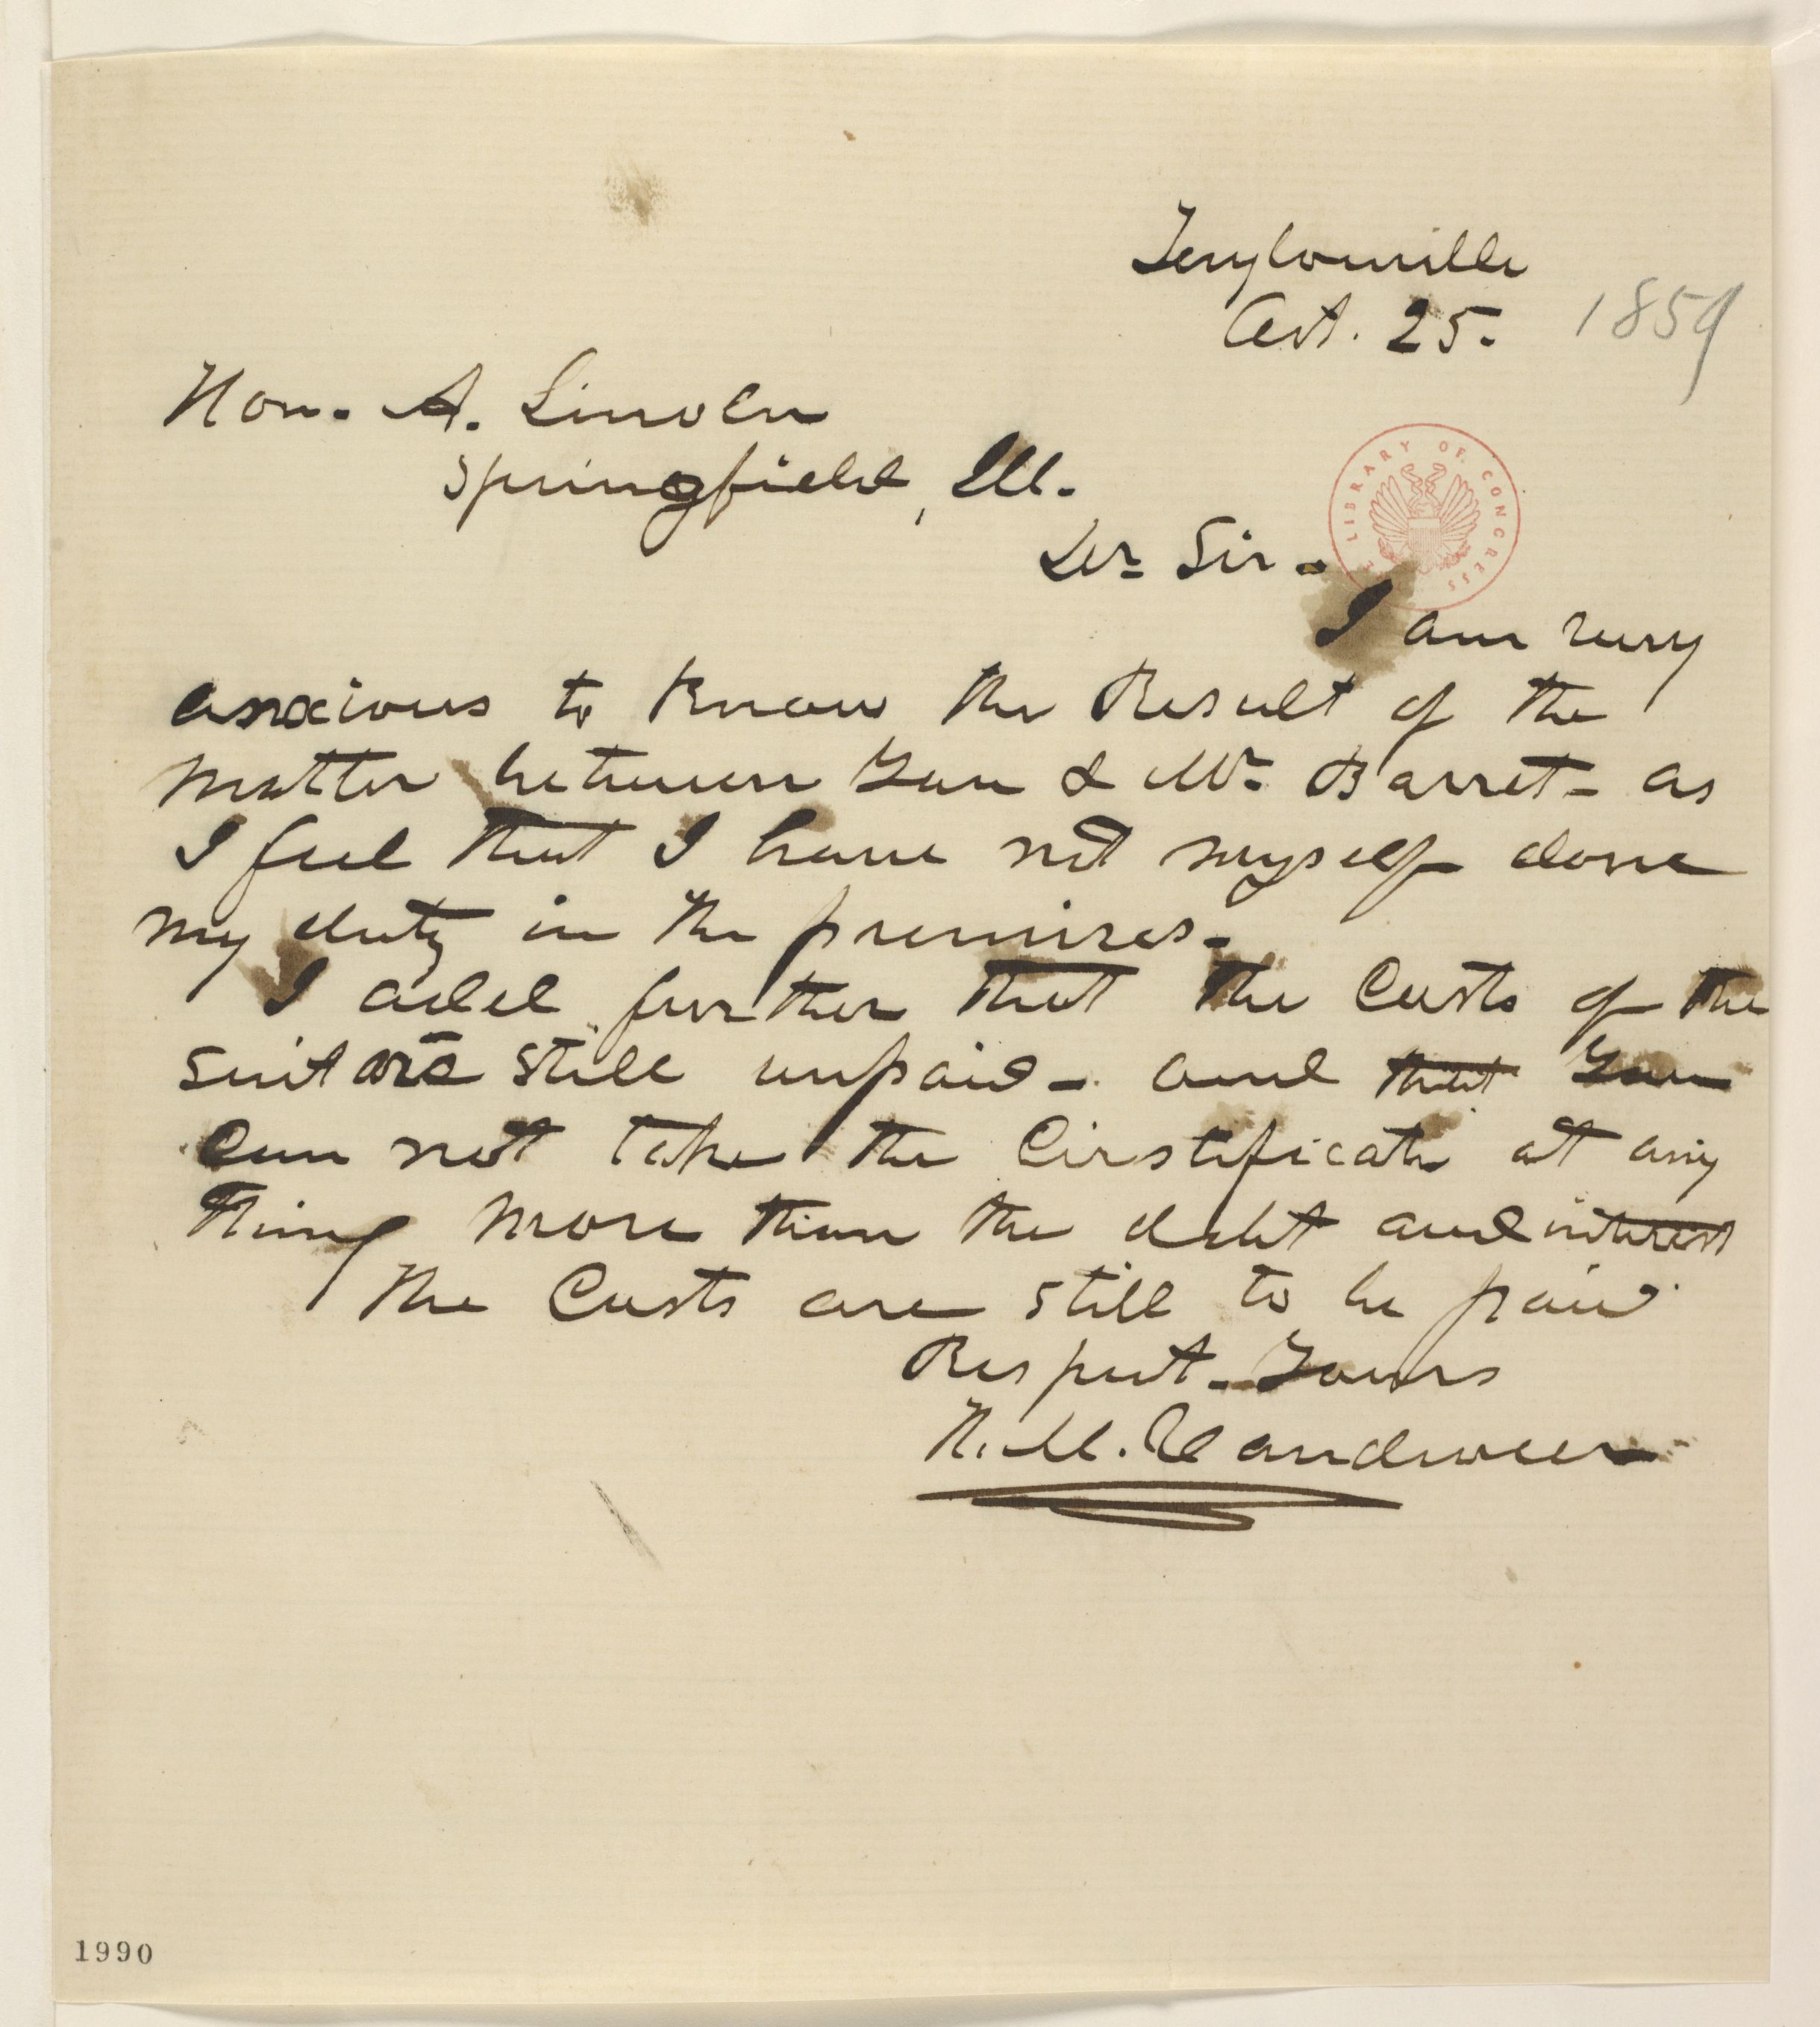 Taylorville
Oct. 25. 1859
Hon. A. Lincoln
Springfield, Ill.
Dr Sir -
LIBRARY OF CONGRESS
I am very
anxious to know the Result of the
matter between You & Mr. Barret - as
I feel that I have not myself done
my duty in the premises -
I add further that the Costs of the
suit are still unpaid - and that You
can not take the Cirstificate at any
thing more than the debt and interest
The Costs are still to be paid.
Respect - Yours
H. M. Vandeveer
1990